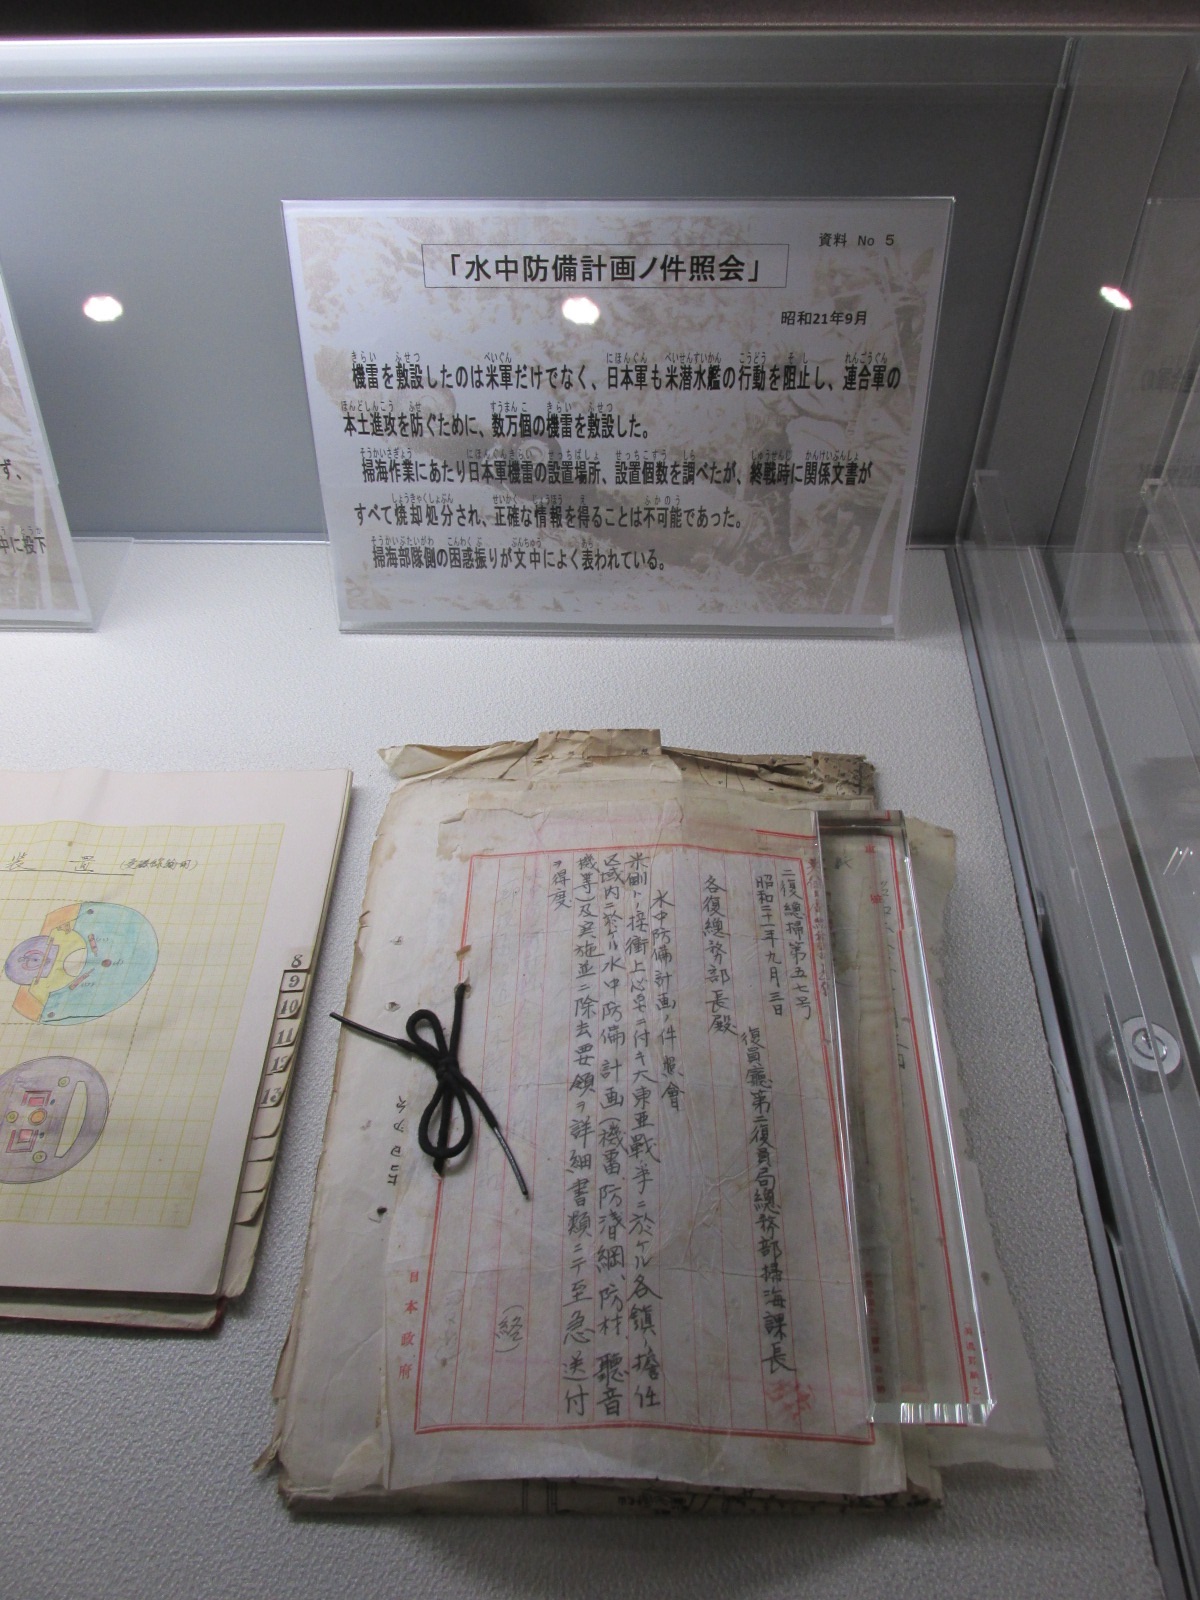 資料 No 5
「水中防備計画ノ件照会」
昭和21年9月
機雷を敷設したのは米軍だけでなく、日本軍も米潜水艦の行動を阻止し、連合軍の
本土進攻を防ぐために、数万個の機雷を敷設した。
掃海作業にあたり日本軍機雷の設置場所、設置個数を調べたが、終戦時に関係文書が
すべて焼却処分され、正確な情報を得ることは不可能であった。
掃海部隊側の困惑振りが文中によく表われている。
ず、
装置
8
9
10
11
12
13
二復總掃第五七号
昭和二十一年九月三日
復員廳第二復員局總務部掃海課長
各復總務部長殿
水中防備計画ノ件照會
米側トノ接衝上必要ニ付キ大東亜戦争ニ於ケル各鎮ノ擔任
区域内ニ於ケル水中防備計画(機雷、防潜網、防材、聽音
機等)及実施並ニ除去要領ヲ詳細書類ニテ至急送付
ヲ得度
(経)
日本政府